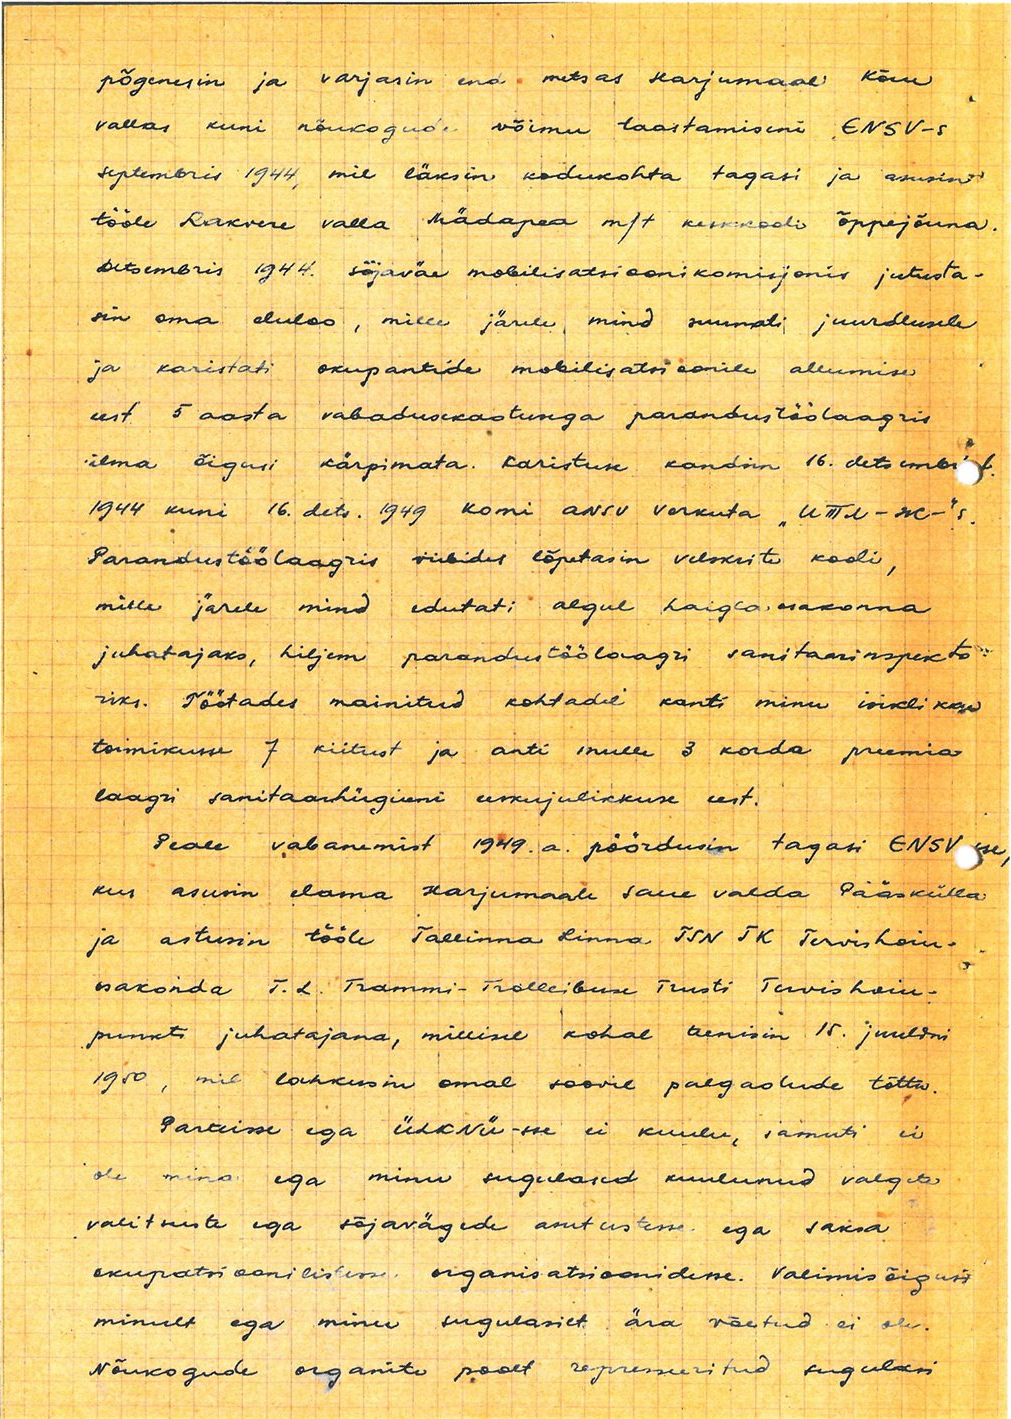 põgenesin ja varjasin end metsas Harjumaal Kõue
vallas kuni nõukogude võimu taastamiseni ENSV-s
septembris 1944, mil läksin kodukohta tagasi ja asusin
tööle Rakvere valla Mädapea m/t keskkooli õppejõuna.
Detsembris 1944. sõjaväe mobilisatsioonikomisjonis jutusta-
sin oma eluloo, mille järele mind suunati juurdlusele
ja karistati okupantide mobilisatsioonile allumise
eest 5 aasta vabadusekaotusega parandustöölaagris
ilma õigusi kärpimata. Karistuse kandsin 16. detsembril
1944 kuni 16. dets. 1949 Komi ANSV Vorkuta „ИТЛ-Ж-"s.
Parandustöölaagris viibides lõpetasin velskrite kooli,
mille järele mind edutati algul haigla osakonna
juhatajaks, hiljem parandustöölaagri sanitaarinspekto-
riks. Töötades mainitud kohtadel kanti minu isiklikku
toimikusse 7 kiitust ja anti mulle 3 korda preemia
laagri sanitaarhügieeni eeskujulikkuse eest.
Peale vabanemist 1949. a. pöördusin tagasi ENSV-sse,
kus asusin elama Harjumaale Saue valda Pääskülla
ja astusin tööle Tallinna Linna TSN TK Tervishoiu-
osakonda T.L. Trammi-Trollibuse Trusti Tervishoiu-
punkti juhatajana, millisel kohal teenisin 15. juulini
1950, mil lahkusin omal soovil palgaolude tõttu.
Parteisse ega ÜLKNÜ-sse ei kuulu, samuti ei
ole mina ega minu sugulased kuulunud valgete
valitsuste ega sõjavägede asutustesse ega saksa
okupatsioonilistesse organisatsioonidesse. Valimisõigusi
minult ega minu sugulasilt ära võetud ei ole.
Nõukogude organite poolt represseeritud sugulasi